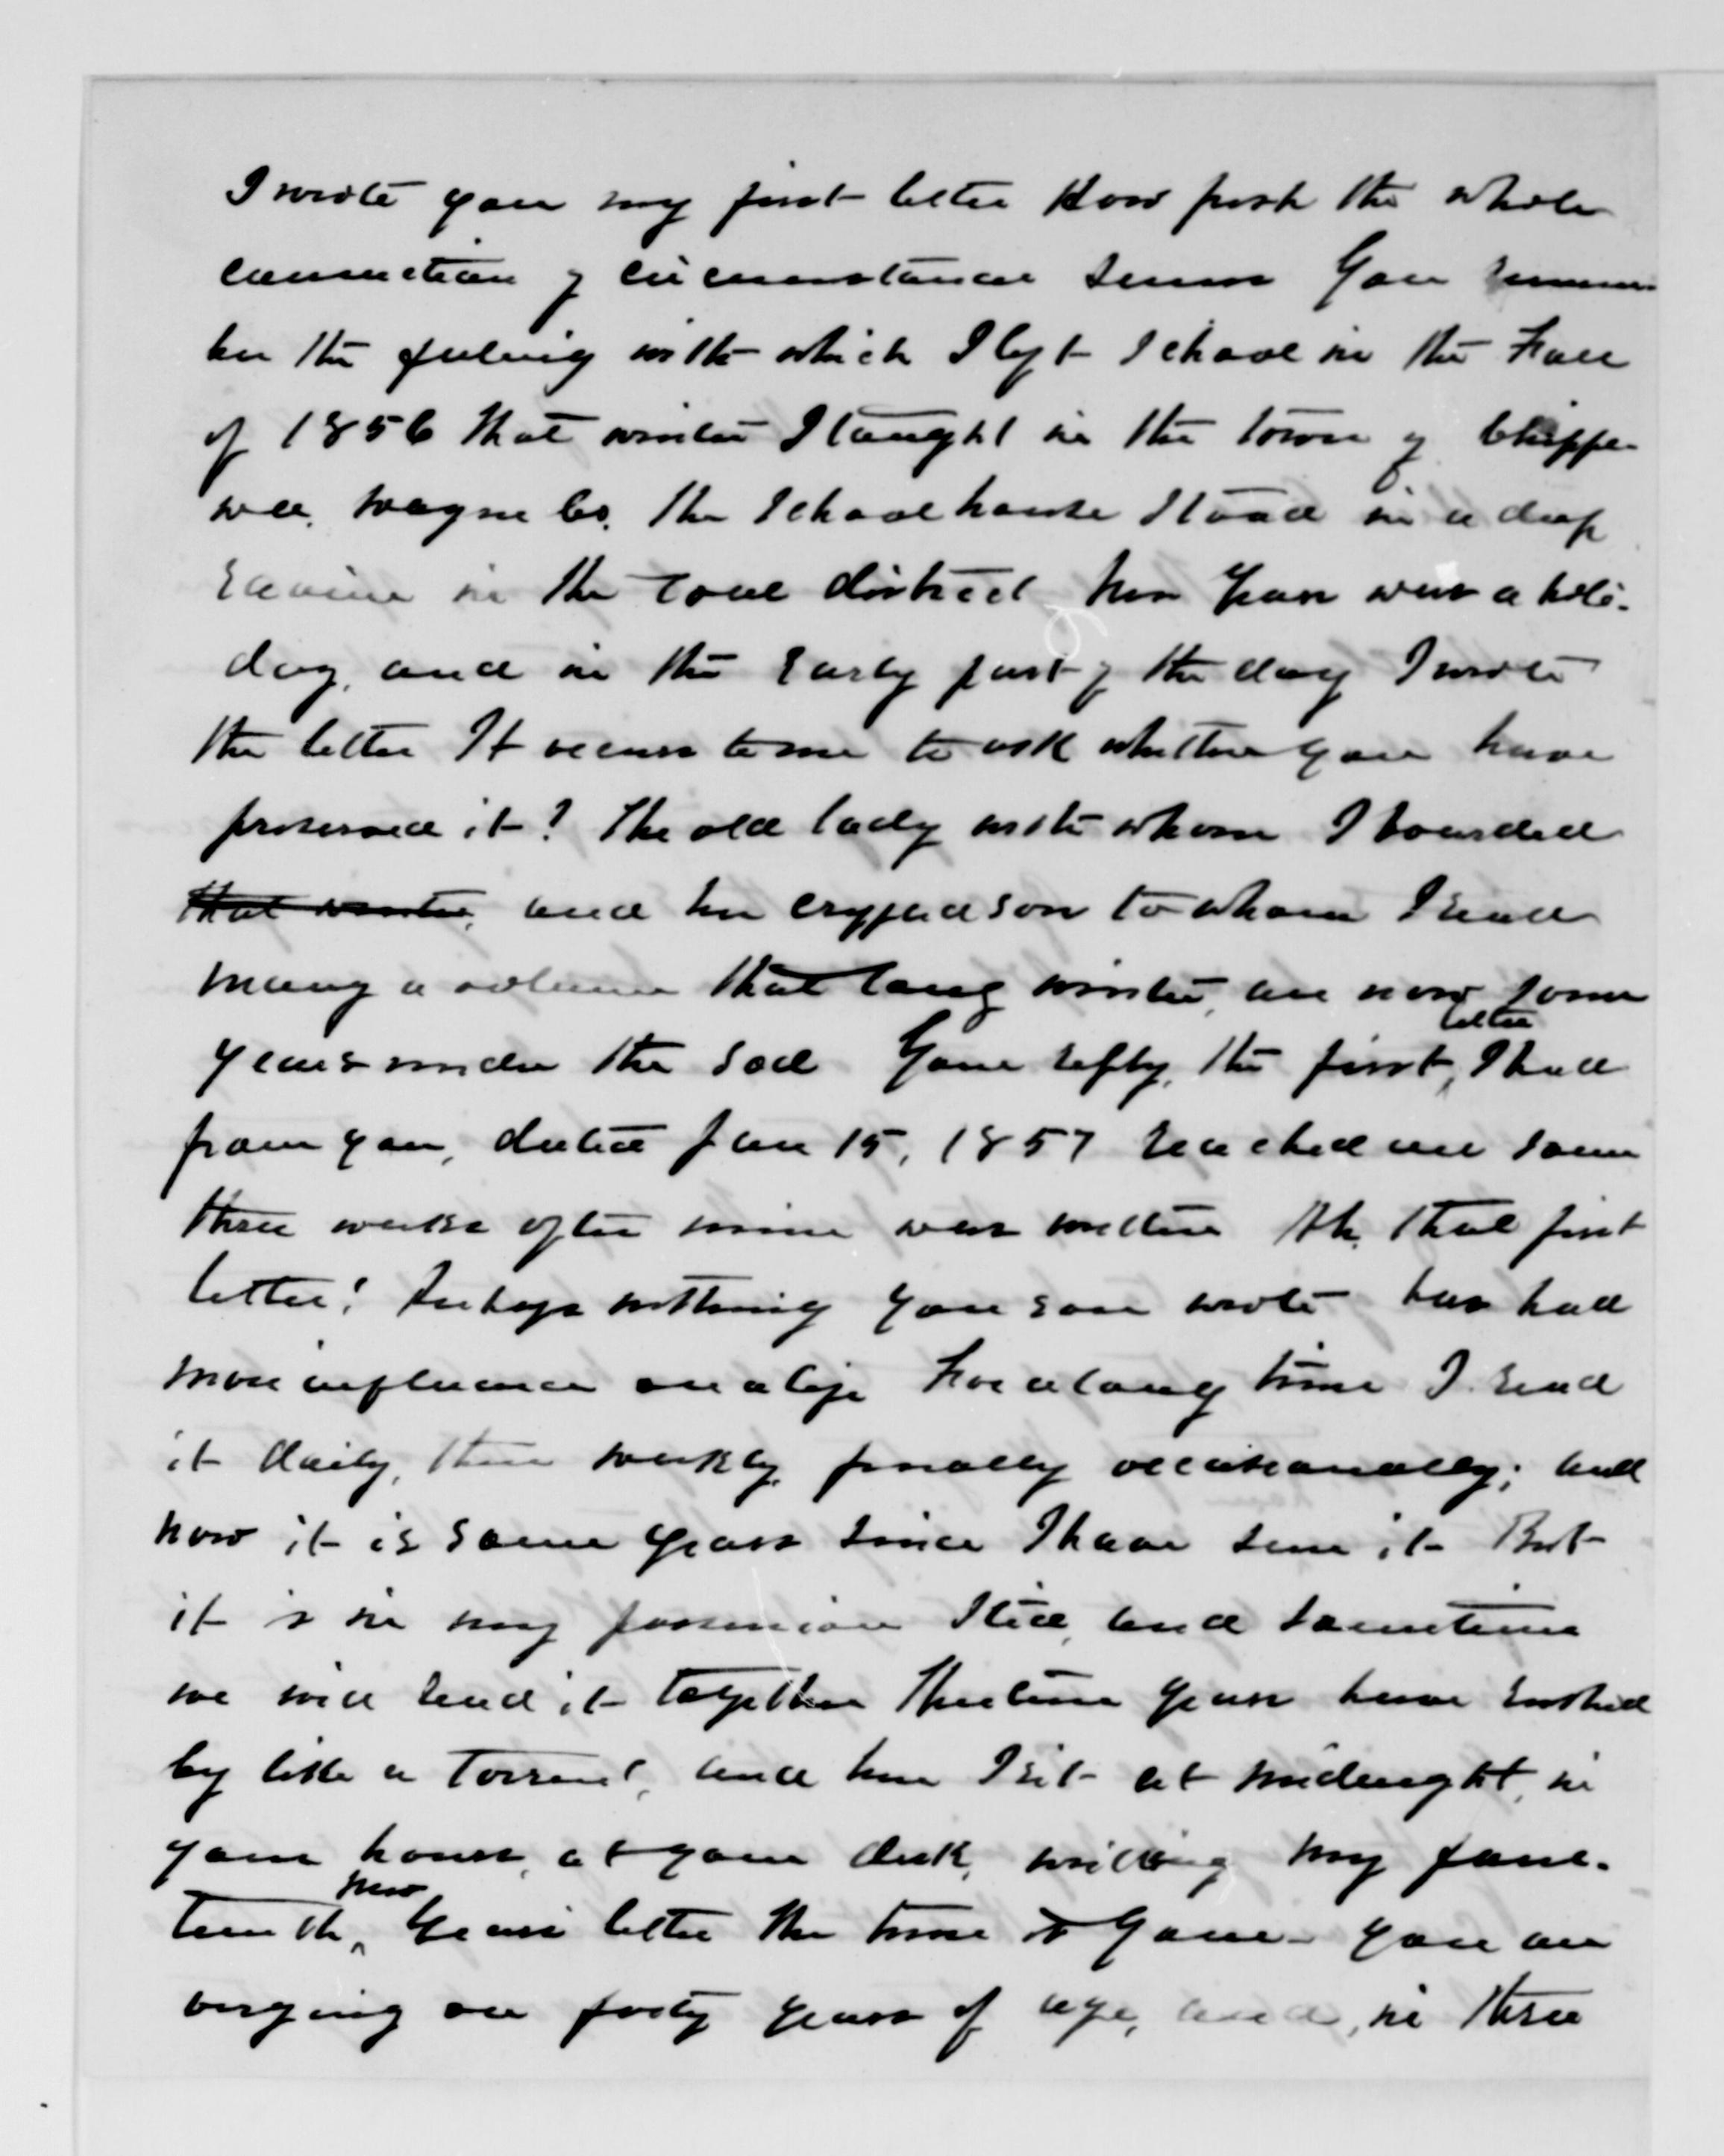 I wrote you my first letter How fresh the whole
connection of circumstances seems You remem-
ber the feeling with which I left School in the Fall
of 1856 That winter I taught in the town of Chippe-
wa, Wayne Co. The Schoolhouse Stood in a deep
ravine in the coal district New Years was a holi-
day, and in the early part of the day I wrote
the letter It occurs to me to ask whether you have
preserved it? The old lady with whom I boarded
that winter, and her crippled son to whom I read
many a volume that long winter, are now some
years under the sod Your reply, the first letter I had
from you, dated Jan 15, 1857 reached me some
three weeks after mine was written Ah, that first
letter! Perhaps nothing you ever wrote has had
more influence on a life For a long time I read
it daily, then weekly, finally occasionally; and
now it is some years since I have seen it But
it is in my possession Still, and sometime
we will read it together Thirteen years have rushed
by like a torrent, and here I sit at midnight, in
your house, at your desk, writing my four-
teenth New Years letter The time is gone - you are
verging on forty years of age, and, in three